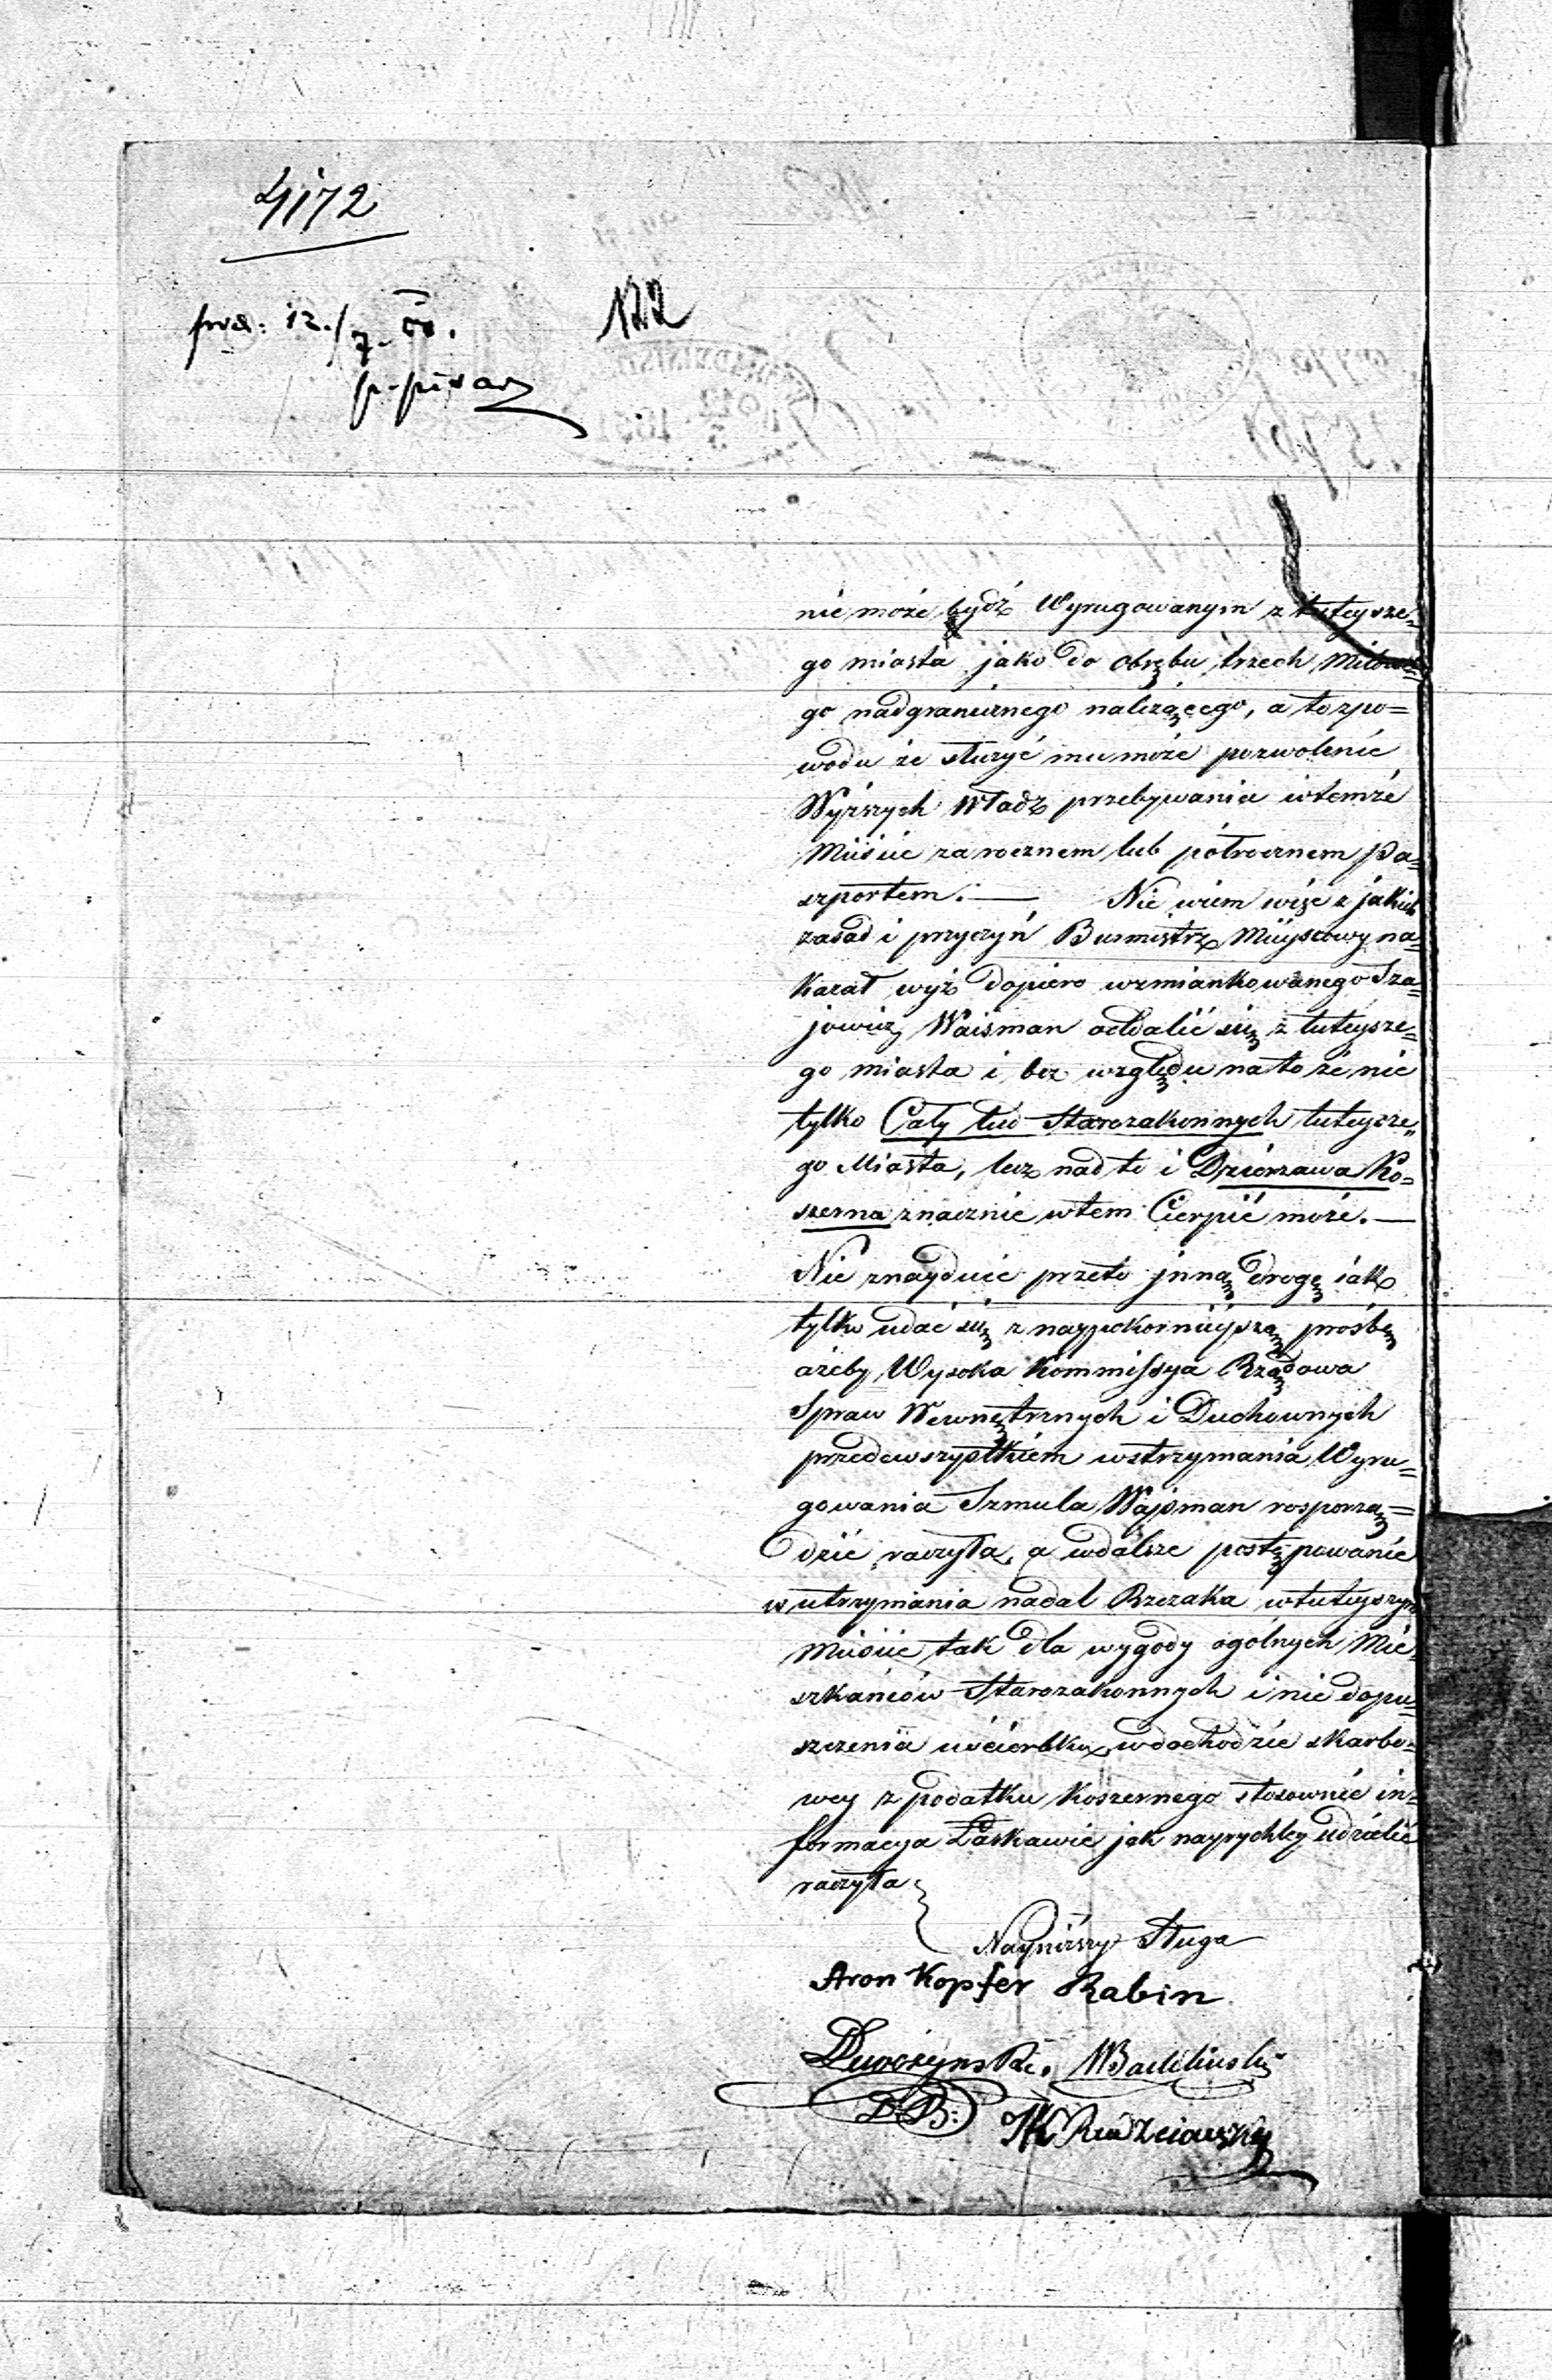 4172
122
nie może bydź Wyrugowanym z tuteysze=
go miasta jako do obrębu trzech Milowe=
go nadgranicznego należącego, a to zpo=
wodu że służyć mu może pozwolenie
Wyższych Władz przebywania wtemże
Mieście za rocznem lub półrocznem Pa=
szportem. — Nie wiem więc z jakich
zasad i przyczyń Burmistrz Mieyscowy na=
kazał wyż dopiero wzmiankowanego Sza=
jowicz Waisman oddalić się z tuteysze=
go miasta i bez względu na to że nie
tylko Cały lud Starozakonnych tuteysze=
go Miasta, lecz nad to i Dzierżawa Ko=
szerna znacznie wtem Cierpić może. —
Nie znayduie przeto jnną drogę iak
tylko udać się z naypokornieyszą prośbą
ażeby Wysoka Kommissya Rządowa
Spraw Wewnętrznych i Duchownych
przedewszystkiem wstrzymania Wyru=
gowania Szmula Wajsman rosporzą=
dzić raczyła, a wdalsze postępowanie
w utrzymania nadal Rzezaka wtuteyszym
Mieście tak dla wygody ogólnych Mie=
szkańców Starozakonnych i nie dopu=
szczenia uścierbku wdochodzie skarbo=
wey z podatku Koszernego stosownie in=
formacya Łaskawie jak nayrychley udzielić
raczyła
Nayniższy Sługa
Aron Kopfer Rabin
DB.